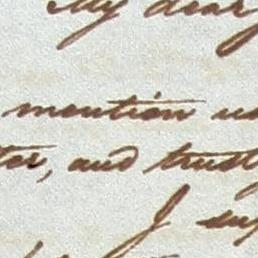 My dear
mention us
ter, and trust
I